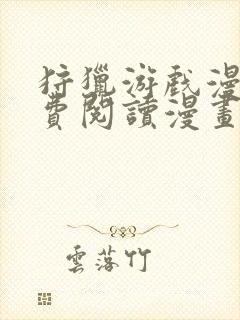 狩獵游戲漫
費閱讀漫畫
雲落竹